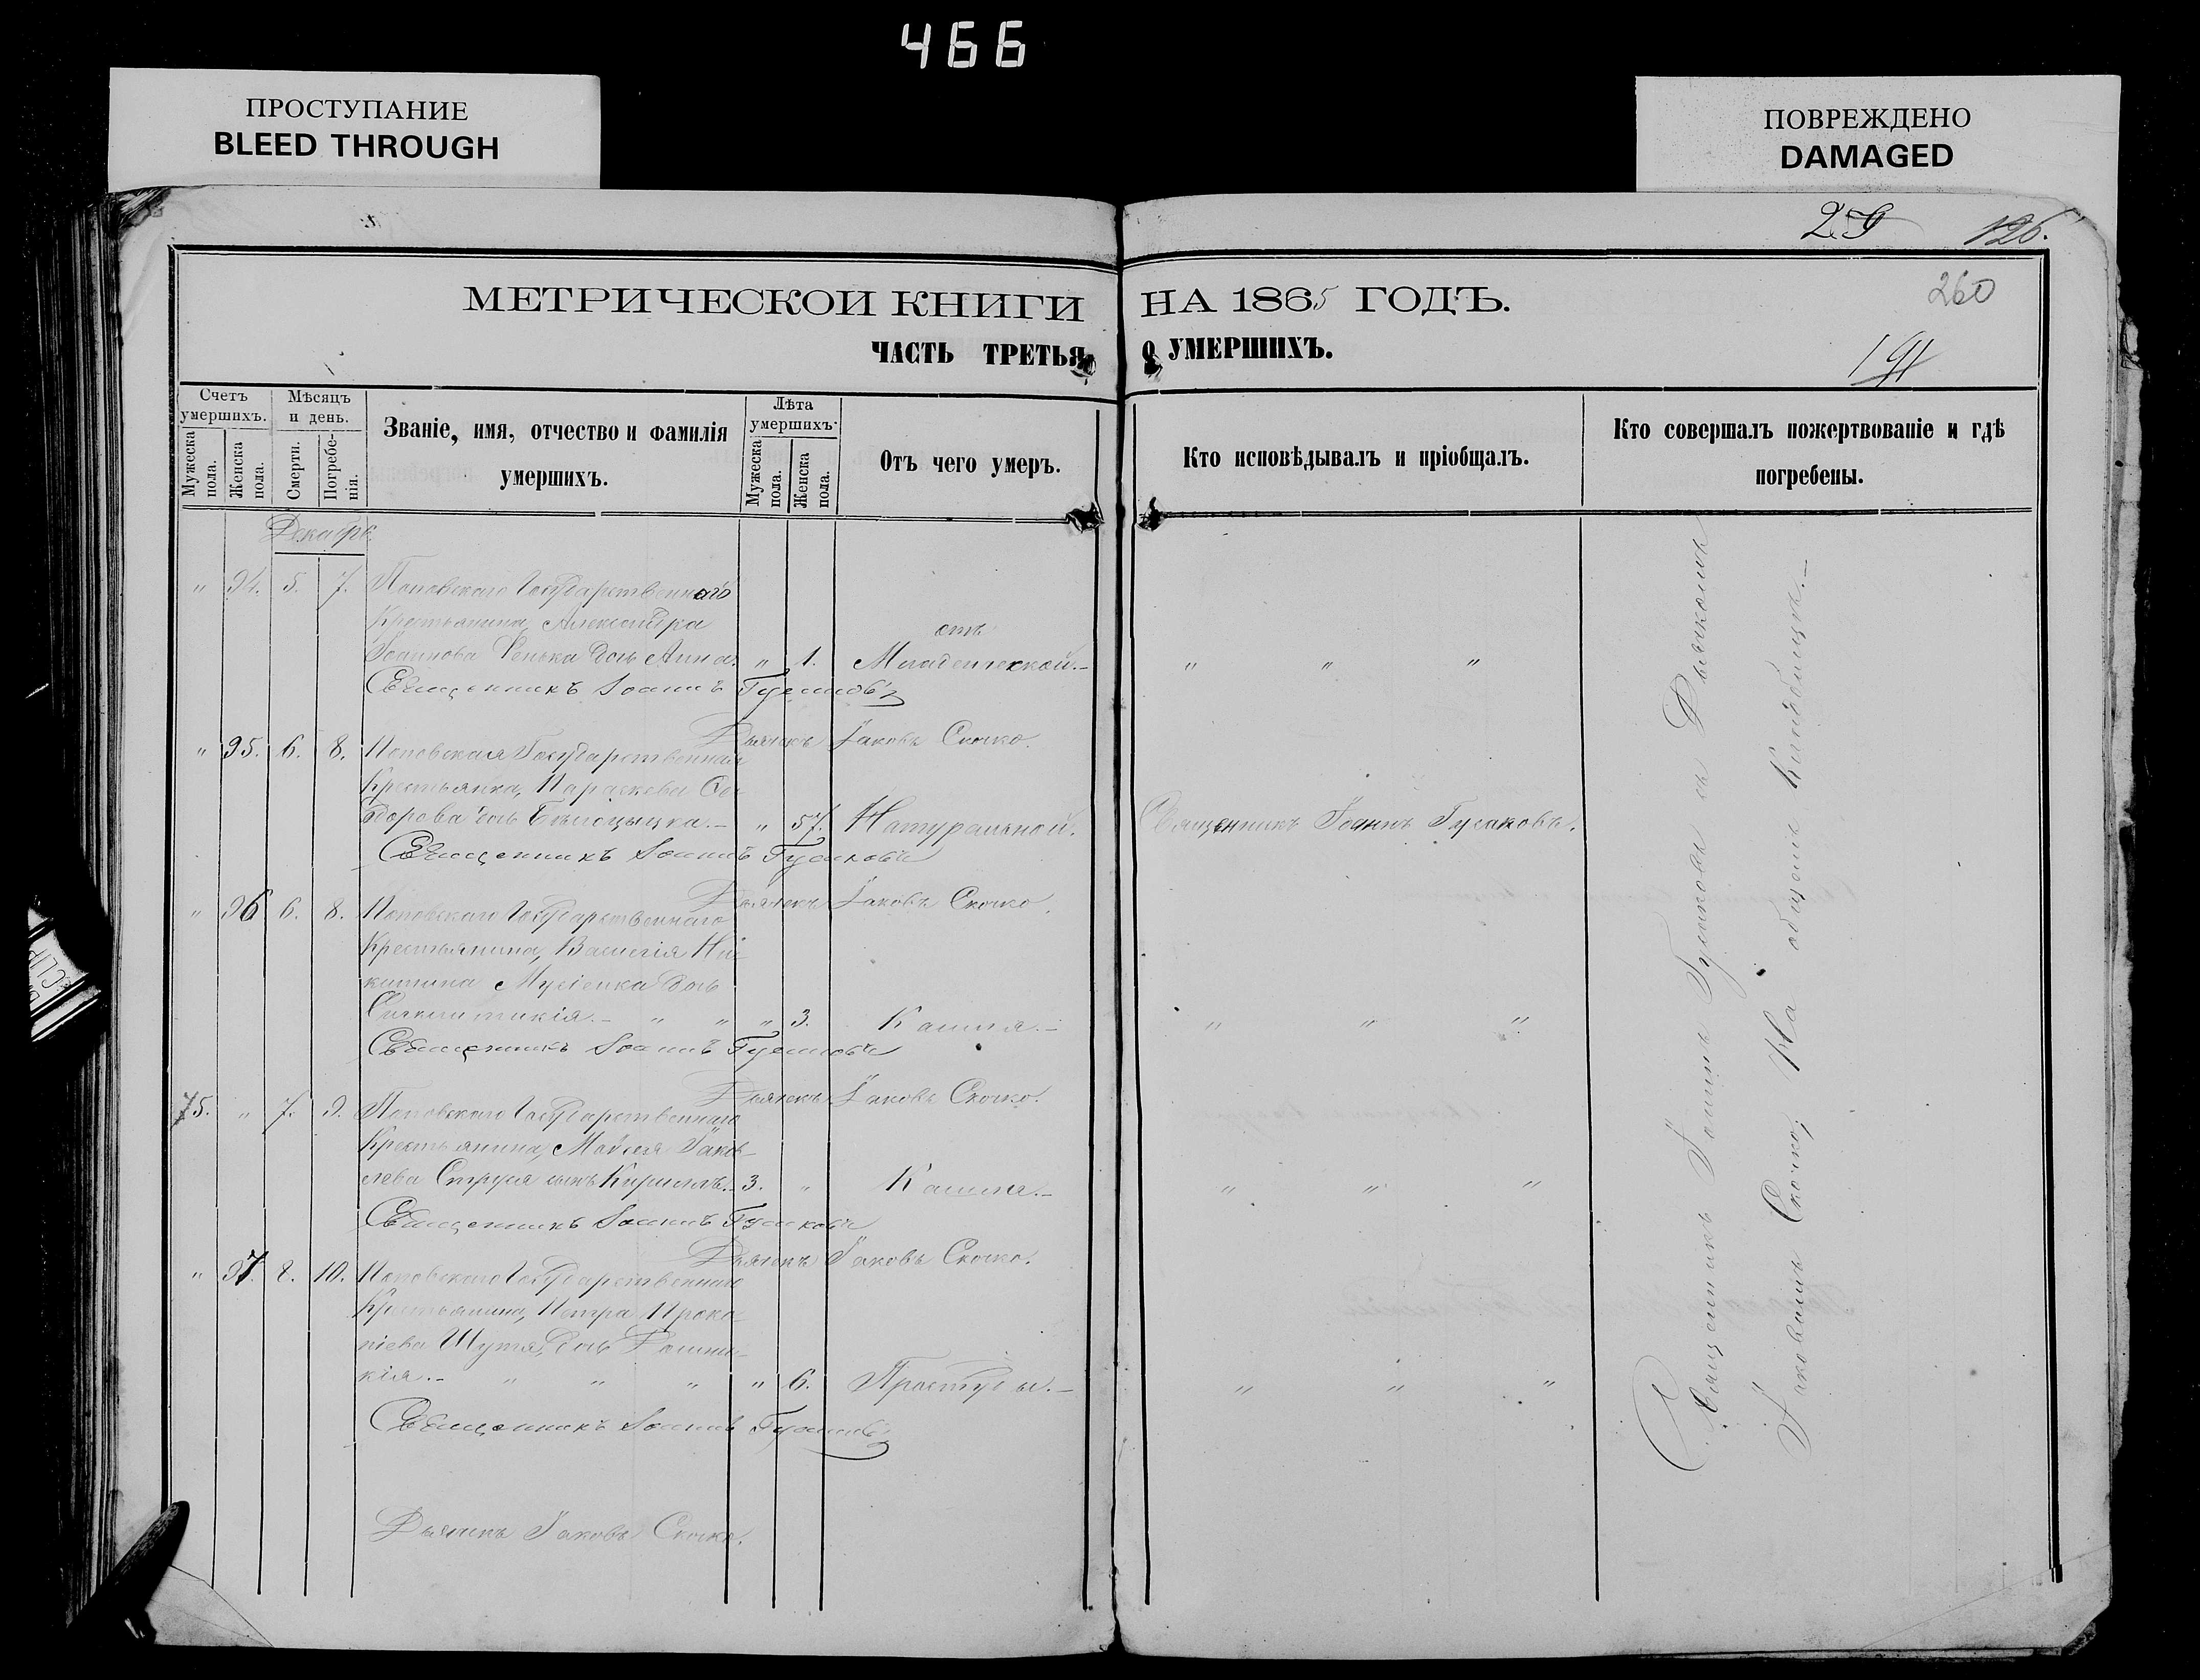 466
ПРОСТУПАНИЕ
BLEED THROUGH
ПОВРЕЖДЕНО
DAMAGED
29
126.
260
191
МЕТРИЧЕСКОИ КНИГИ НА 1865 ГОДЪ.
ЧАСТЬ ТРЕТЬЯ О УМЕРШИХЪ.
Счетъ умершихъ.
Мужеска пола.
Женска пола.
Мѣсяцъ и день.
Смерти.
Погребенія.
Званіе, имя, отчество и фамилія
умершихъ.
Лѣта умершихъ.
Мужеска пола.
Женска пола.
Отъ чего умеръ.
Кто исповѣдывалъ и пріобщалъ.
Кто совершалъ пожертвованіе и гдѣ
погребены.
Декабрь
" 94. 5. 7. Поповскаго Государственнаго
Крестьянина, Александра
отъ
Іоаннова дочь Анна. " 1. Младенческой.- " " "
Священникъ Іоаннъ Гусаковъ
Дьячекъ Іаковъ Скочко.
" 95. 6. 8. Поповская Государственная
Крестьянка, Параскева Си-
дорова дочь " 57. Натуральной. Священникъ Іоаннъ Гусаковъ.
Священникъ Іоаннъ Гусаковъ
Дьячекъ Іаковъ Скочко.
" 96 6. 8. Поповскаго Государственнаго
Крестьянина, Василія Ни-
китина Мусіенка дочь
Синклитикія.- " " " 3. Кашля.- " " "
Священникъ Іоаннъ Гусаковъ
Дьячекъ Іаковъ Скочко.
75. " 7. 9. Поповскаго Государственнаго
Крестьянина, Мойсея Іаков-
лева Струся сынъ Кириллъ.- 3. " Кашля.- " " "
Священникъ Іоаннъ Гусаковъ
Дьячекъ Іаковъ Скочко.
" 97. 8. 10. Поповскаго Государственнаго
Крестьянина, Петра Проко-
піева Шутя, дочь Домни-
кія.- " " " " 6. Простуды.- " " "
Священникъ Іоаннъ Гусаковъ
Дьячекъ Іаковъ Скочко.
Священникъ Іоаннъ Гусаковъ съ Дьячкомъ
Іаковомъ Скочко, На общемъ Кладбищѣ.-